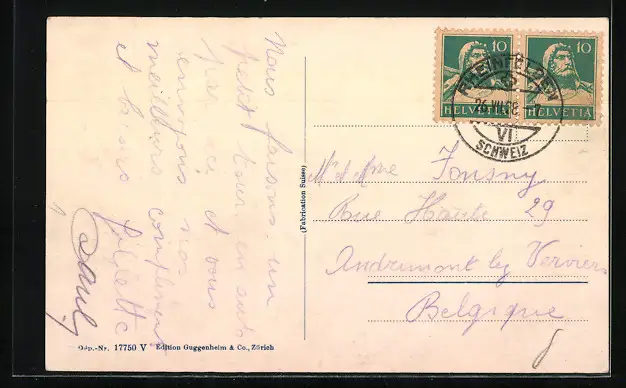 Nous faisons un
petit tour en suis
par ci et vous
envoyons nos
meilleurs compliments
et baisers fillette
Pauly
(Fabrication Suisse)
10 10
HELVETIA HELVETIA
RHEINFELDEN
VI
SCHWEIZ
Mr et Mme Fonsny
Rue Haute 29
Andrimont lez Verviers
Belgique
Dép.-Nr. 17750 V Edition Guggenheim & Co., Zürich